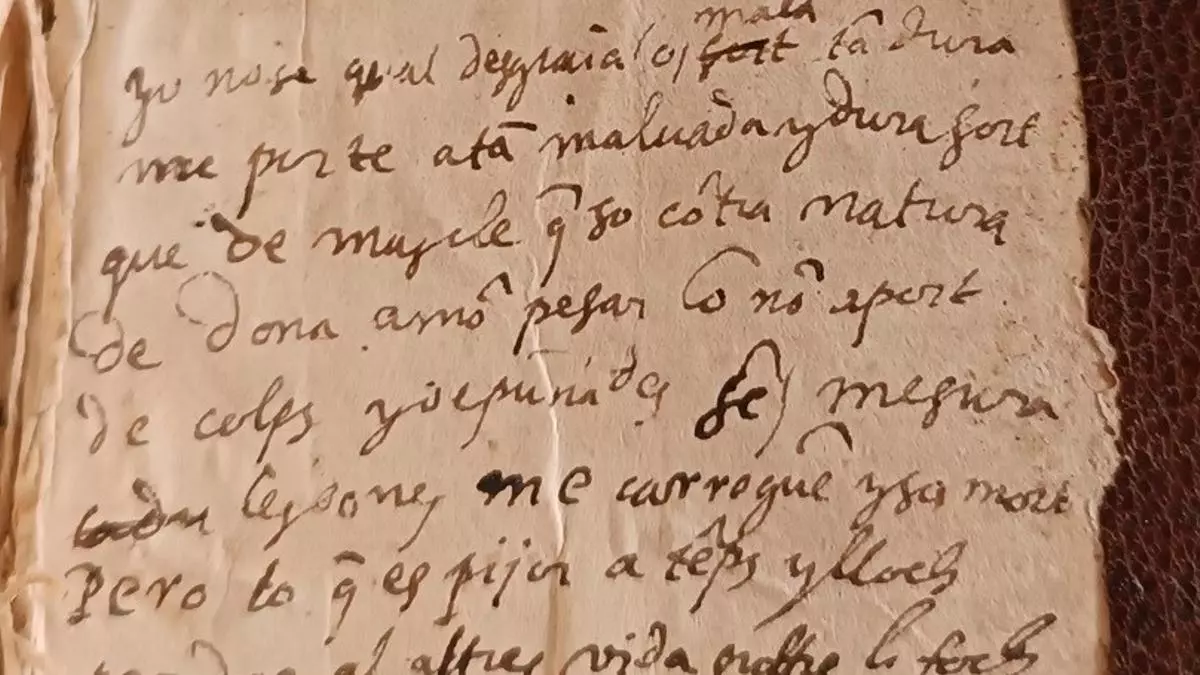 mala
yo no se qual desgraçia o sort tā dura
me porte a tā maluada y dura sort
que de mascle q̄ so cōtra natura
de dona amō pesar lo nō aport
de colps y de puñades sēs mesura
les dones me carreguē y so mort
Pero lo q̄ es pijor a tēps y lloch
altres vida lo foch